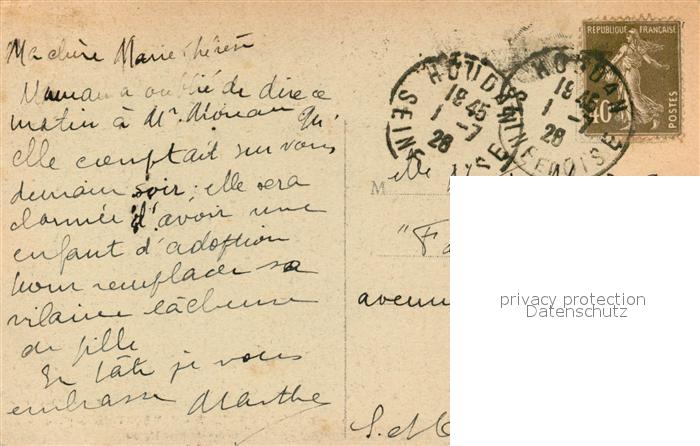 Ma chère Marie Thérèse
Maman a oublié de dire ce
matin à Mr. qu'
elle comptait sur vous
demain soir ; elle sera
charmée d'avoir une
enfant d'adoption
pour remplacer sa
vilaine lâcheuse
de fille
En hâte je vous
embrasse Marthe
HOUDAN
18 45
1 - 7
28
SEINE ET OISE
HOUDAN
18 45
1 - 7
28
SEINE ET OISE
REPUBLIQUE FRANÇAISE
40c
POSTES
Melle
"Fa
avenue
S. et O
privacy protection
Datenschutz